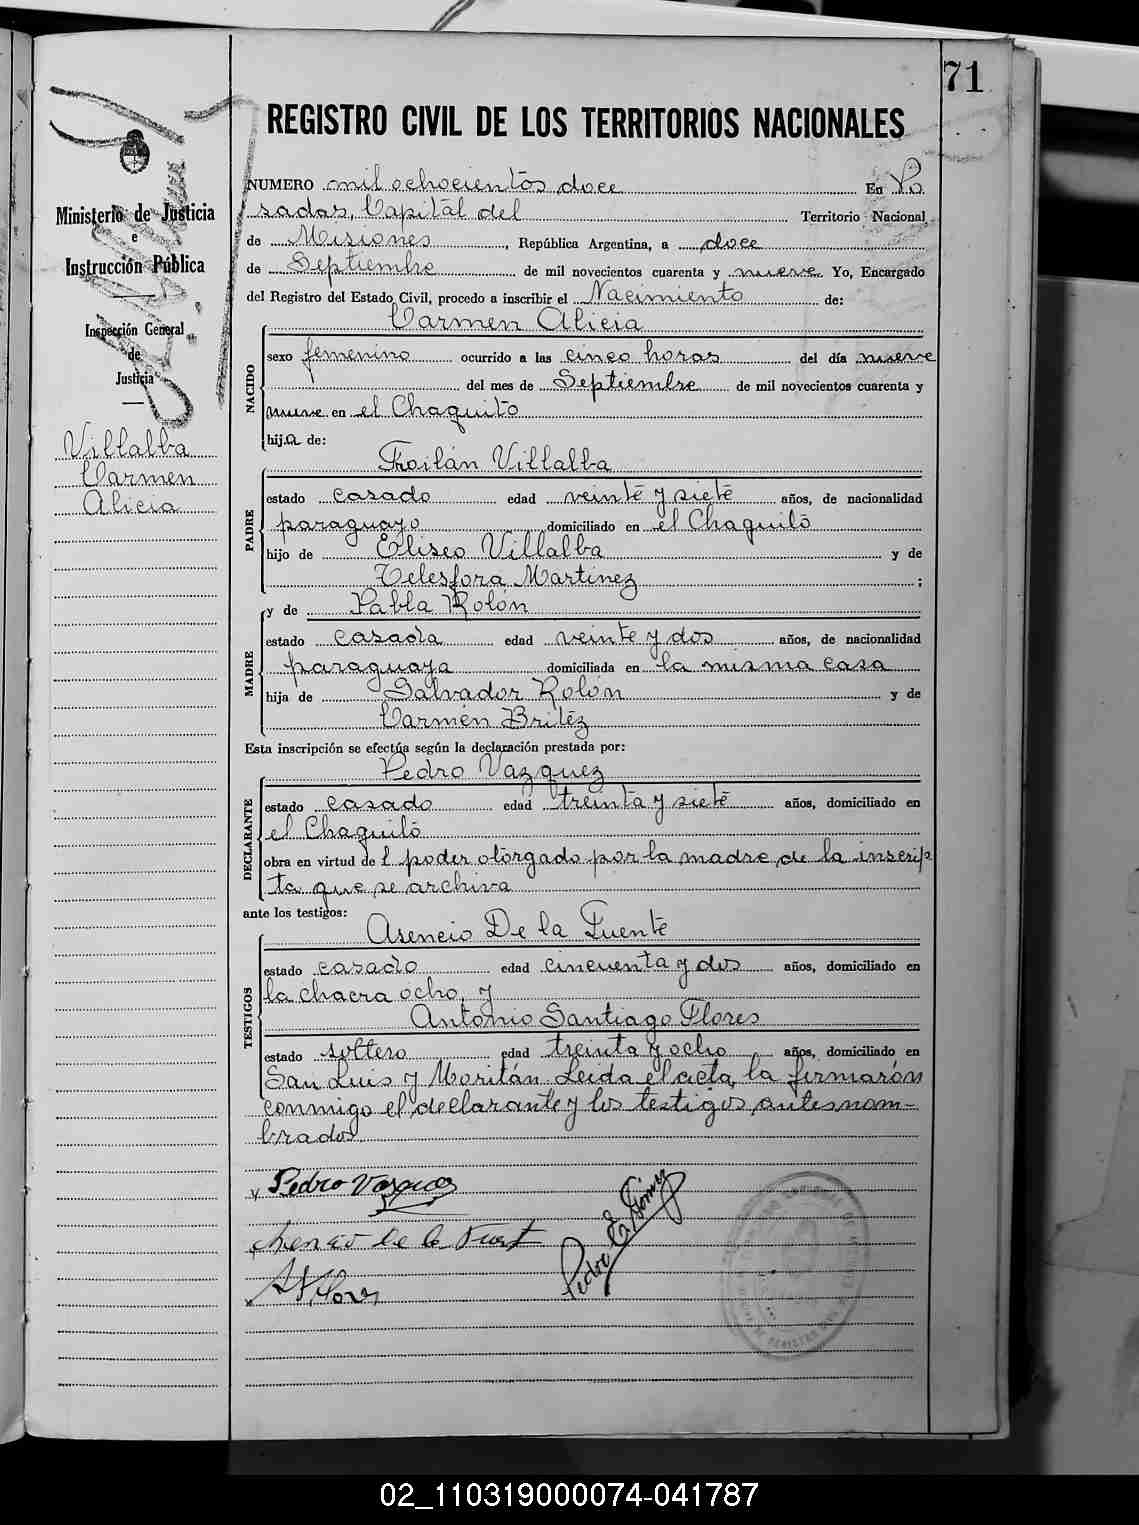 71
REGISTRO CIVIL DE LOS TERRITORIOS NACIONALES
Ministerio de Justicia
e
Instrucción Pública
Inspección General
de
Justicia
Villalba
Carmen
Alicia
NUMERO mil ochocientos doce En Po
sadas, Capital del Territorio Nacional
de Misiones, República Argentina, a doce
de Septiembre de mil novecientos cuarenta y nueve Yo, Encargado
del Registro del Estado Civil, procedo a inscribir el Nacimiento de:
NACIDO
Carmen Alicia
sexo femenino ocurrido a las cinco horas del día nueve
del mes de Septiembre de mil novecientos cuarenta y
nueve en el Chaquito
hija de:
PADRE
Froilán Villalba
estado casado edad veinte y siete años, de nacionalidad
paraguayo domiciliado en el Chaquito
hijo de Eliseo Villalba y de
Telesfora Martinez ;
y de Pabla Rolón
MADRE
estado casada edad veinte y dos años, de nacionalidad
paraguaya domiciliada en la misma casa
hija de Salvador Rolón y de
Carmen Britéz
Esta inscripción se efectúa según la declaración prestada por:
DECLARANTE
Pedro Vazquez
estado casado edad treinta y siete años, domiciliado en
el Chaquito
obra en virtud del poder otorgado por la madre de la inscrip
ta que se archiva
ante los testigos:
TESTIGOS
Asencio De la Fuente
estado casado edad cincuenta y dos años, domiciliado en
la chacra ocho, y
Antonio Santiago Flores
estado soltero edad treinta y ocho años, domiciliado en
San Luis y Moritán. Leida el acta, la firmarón
conmigo el declarante y los testigos antesnom-
brados
Pedro Vasquez
Pedro E. Gómez
Asencio de la Fuent
A S Flores
02_110319000074-041787